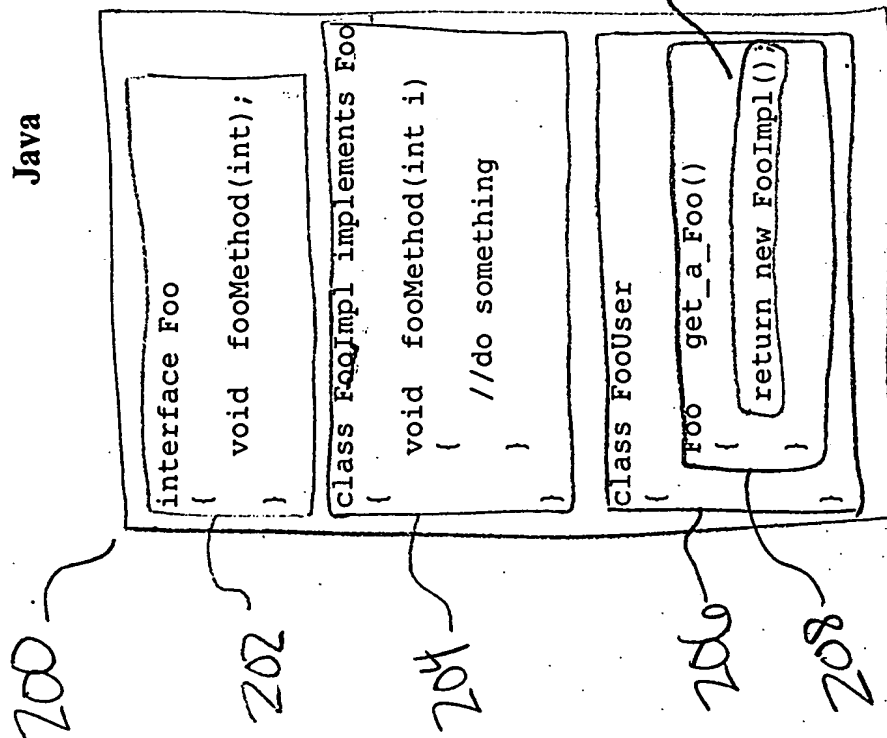 Java
200
202
interface Foo
{
void fooMethod(int);
}
204
class FooImpl implements Foo
{
void fooMethod(int i)
{
//do something
}
}
206
class FooUser
{
208
Foo get_a_Foo()
{
return new FooImpl();
}
}